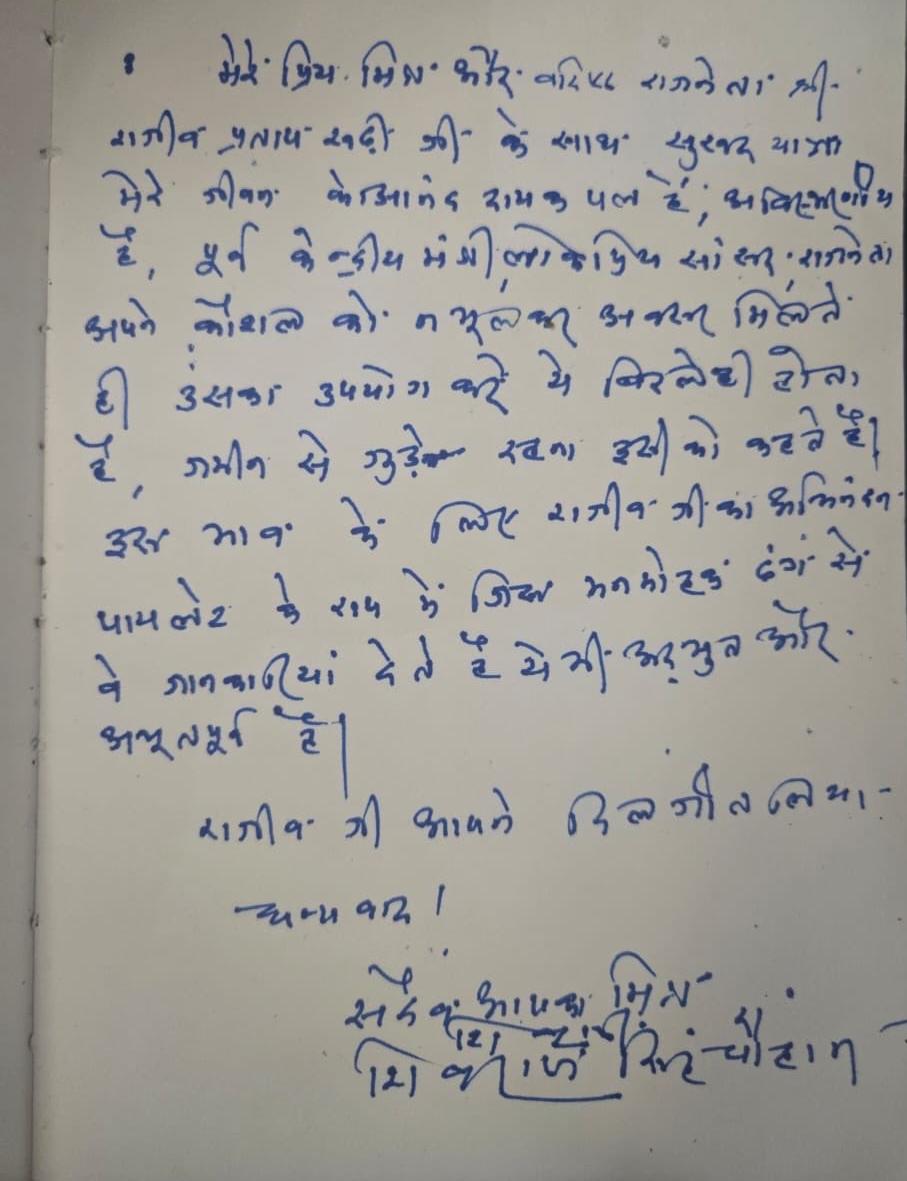 मेरे प्रिय मित्र और वरिष्ठ राजनेता श्री
राजीव प्रताप रूढ़ी जी के साथ सुखद यात्रा
मेरे जीवन के आनंद दायक पल हैं, अविस्मरणीय
है, पूर्व केन्द्रीय मंत्री लोकप्रिय सांसद राजनेता
अपने कौशल को न भूलकर अवसर मिलते
ही उसका उपयोग करें ये विरले ही होता
है, जमीन से जुड़े रहना इसी को कहते है।
इस भाव के लिए राजीव जी का अभिनंदन
पायलेट के रूप में जिस मनमोहक ढंग से
वे जानकारियां देते है ये भी अद्भुत और
अभूतपूर्व है।
राजीव जी आपने दिल जीत लिया-
धन्यवाद।
सदैव आपका मित्र
शिवराज सिंह चौहान